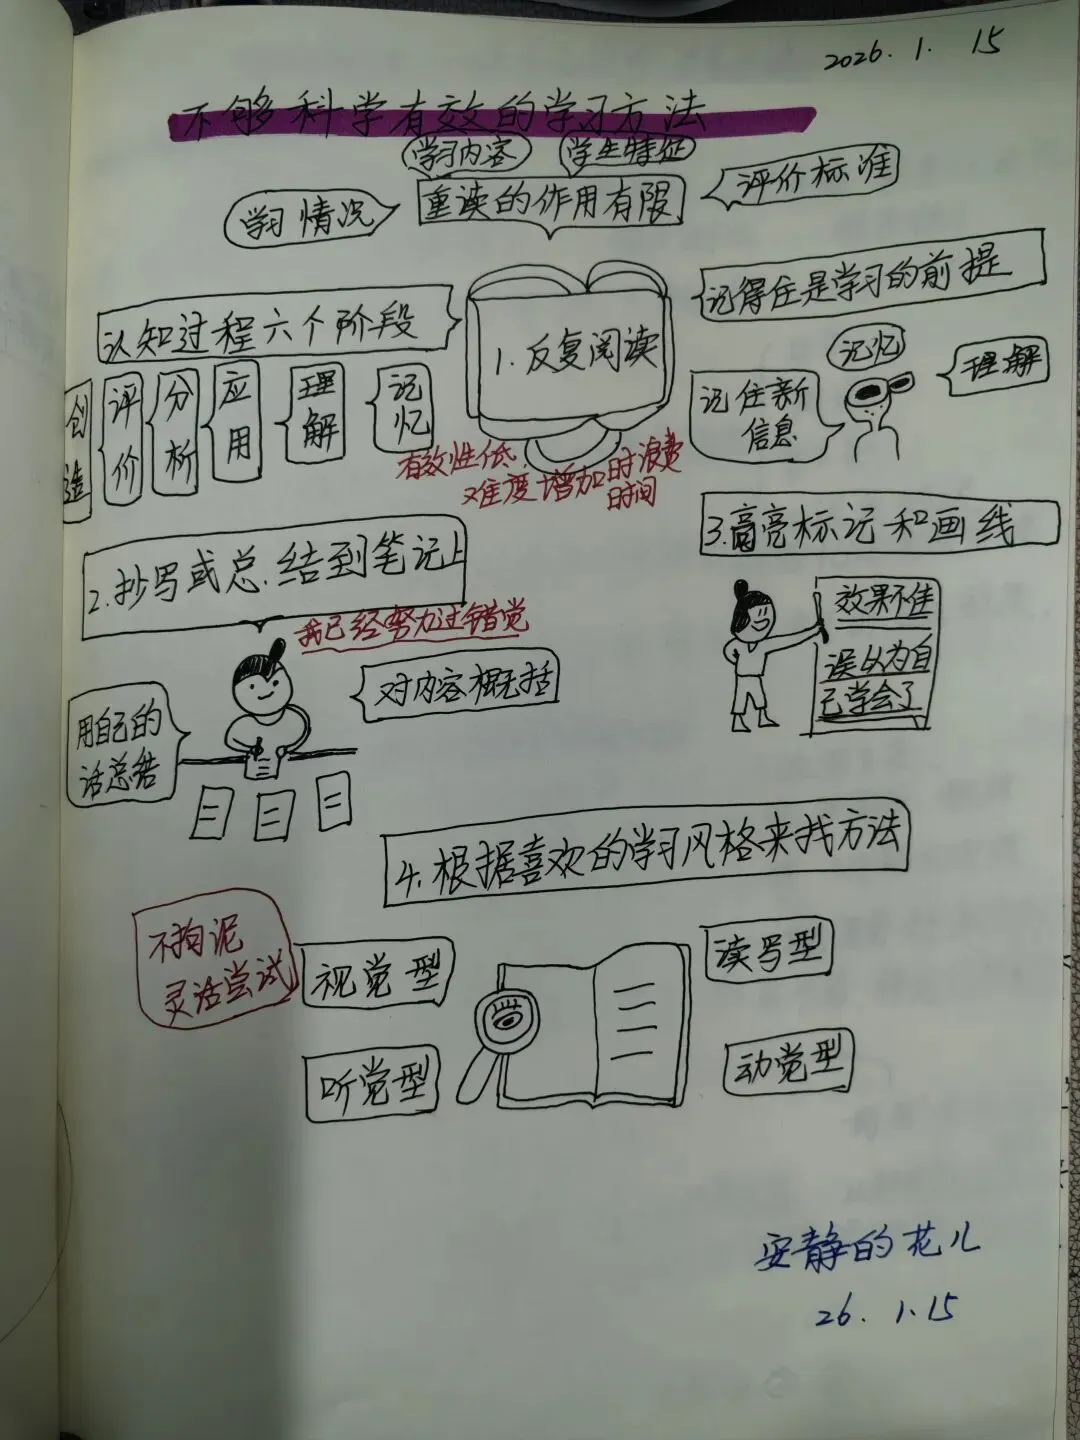 2026.1.15
不够科学有效的学习方法
学习内容
学生特征
评价标准
学习情况
重读的作用有限
记得住是学习的前提
认知过程六个阶段
1.反复阅读
记忆
理解
记住新
信息
创造
评价
分析
应用
理解
记忆
有效性低,
难度增加时浪费
时间
3.高亮标记和画线
2.抄写或总结到笔记上
我已经努力过错觉
效果不佳
误认为自
己学会了
对内容概括
用自己的
话总结
4.根据喜欢的学习风格来找方法
不拘泥
灵活尝试
视觉型
读写型
听觉型
动觉型
安静的花儿
26.1.15